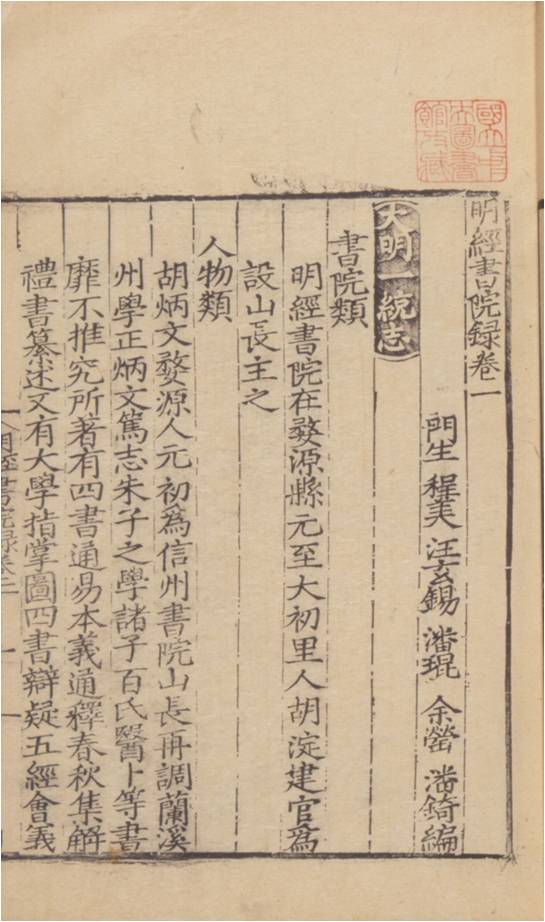 國立中央圖書館收藏
明經書院録卷一
門生 程美 汪玄錫 潘琨 余瑩 潘錡編
大明一統志
書院類
明經書院在婺源縣元至大初里人胡淀建官爲
設山長主之
人物類
胡炳文婺源人元初爲信州書院山長再調蘭溪
州學正炳文篤志朱子之學諸子百氏醫卜等書
靡不推究所著有四書通易本義通釋春秋集解
禮書纂述又有大學指掌圖四書辯疑五經會義
明經書院録卷一